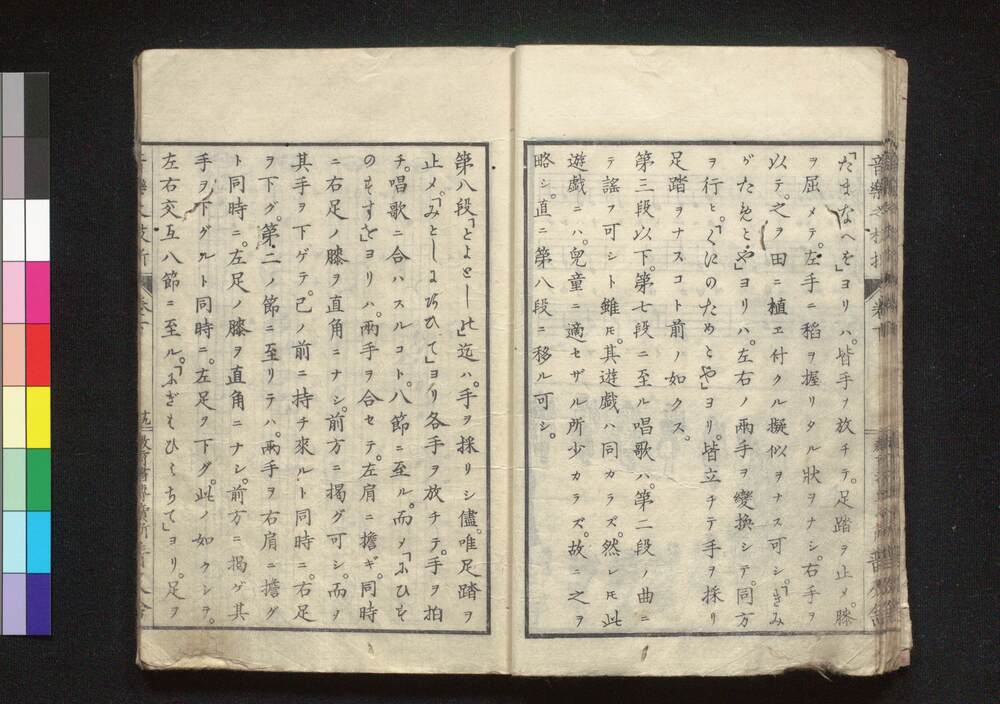 「たまなへを」ヨリハ。皆手ヲ放チテ。足踏ヲ止メ。膝
ヲ屈メテ。左手ニ稻ヲ握リタル狀ヲナシ。右手ヲ
以テ。之ヲ田ニ植ヱ付クル擬似ヲナス可シ。「きみ
ヨリハ。左右ノ兩手ヲ變換シテ。同方
ヲ行ヒ。「くにのためとや」ヨリ。皆立チテ手ヲ採リ
足踏ヲナスコト前ノ如クス。
第三段以下。第七段ニ至ル唱歌ハ。第二段ノ曲ニ
テ謠フ可シト雖モ。其遊戲ハ同カラズ。然レモ此
遊戲ニハ。兒童ニ適セザル所少カラズ。故ニ之ヲ
略シ。直ニ第八段ニ移ル可シ。
第八段「とよとし」迄ハ。手ヲ採リシ儘。唯足踏ヲ
止メ。ヨリ各手ヲ放チテ。手ヲ拍
チ。唱歌ニ合ハスルコト。八節ニ至ル。而メ
ヨリハ。兩手ヲ合セテ。左肩ニ擔ギ。同時
ニ右足ノ膝ヲ直角ニナシ。前方ニ揭グ可シ。而ヲ
其手ヲ下ゲテ。己ノ前ニ持チ來ルト同時ニ。右足
ヲ下グ。第二ノ節ニ至リテハ。兩手ヲ右肩ニ擔グ
ト同時ニ。左足ノ膝ヲ直角ニナシ。前方ニ揭ゲ其
手ヲ下グルト同時ニ。左足ヲ下グ。此ノ如クシヲ。
左右交互八節ニ至ル。ヨリ。足ヲ